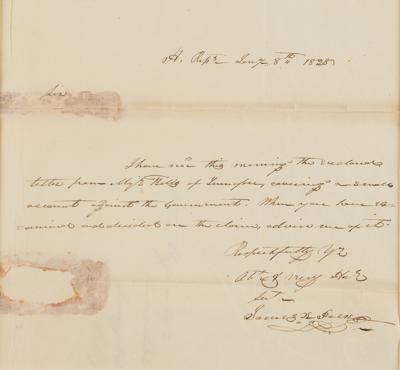 H. Reps Jany 8th 1828
Sir
I have recd this morning the enclosed
letter from Majr of Tennessee, covering a small
account against the Government. When you have ex-
amined and decided on the claim, advise me of it.
Respectfully Yr
Obt & very Hue
Sevt
James K Polk